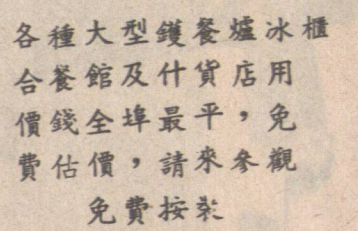 各種大型鑊餐爐冰櫃
合餐館及什貨店用
價錢全埠最平，免
費估價，請來參觀
免費按裝